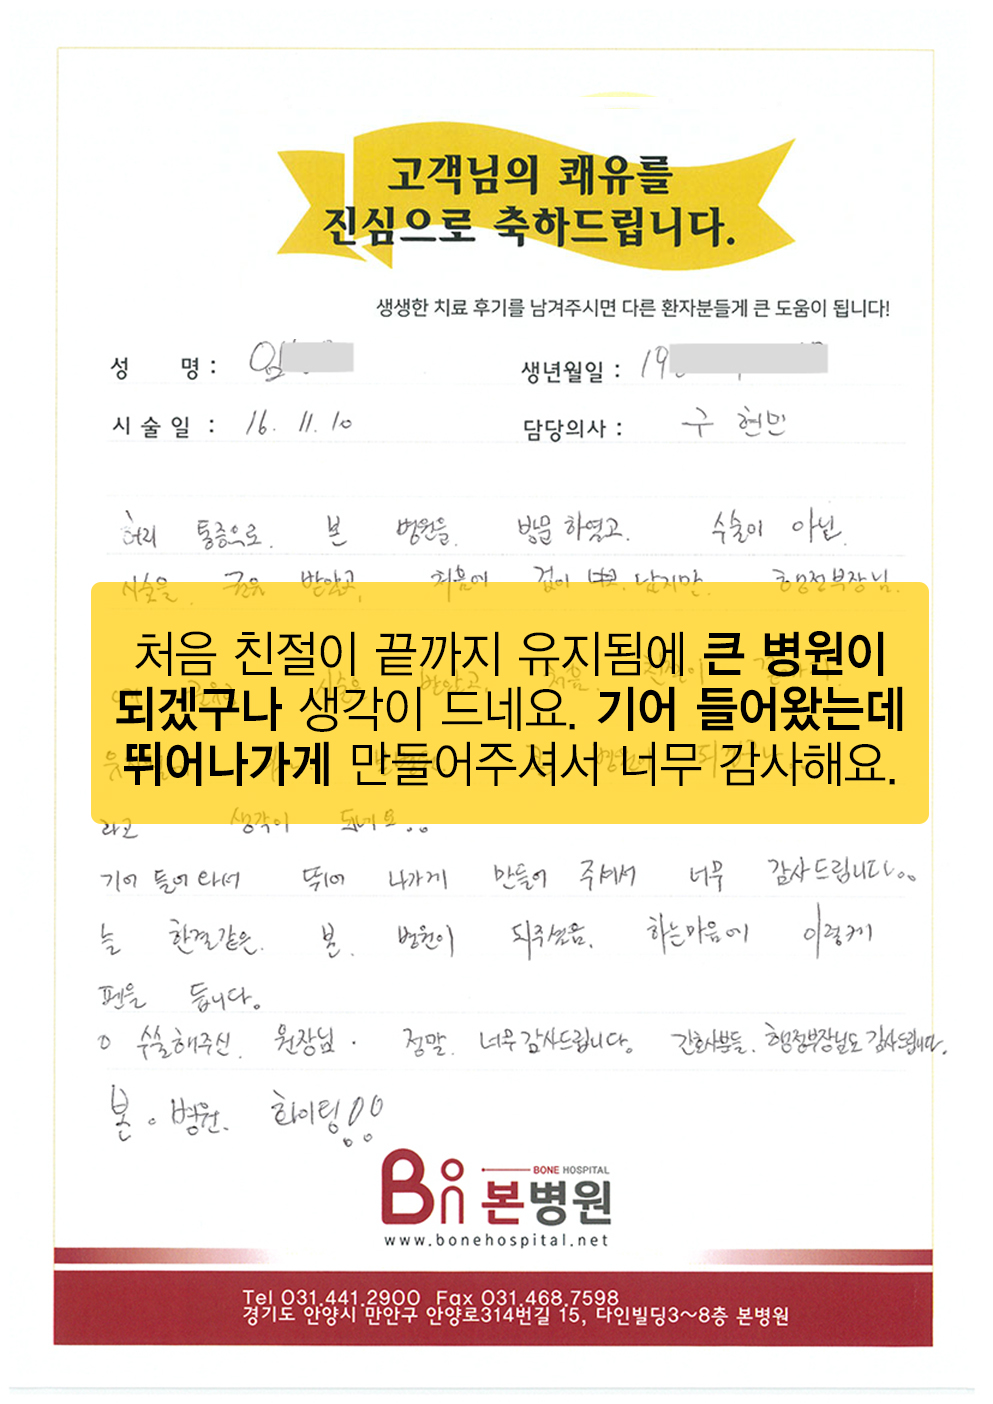 고객님의 쾌유를
진심으로 축하드립니다.
생생한 치료 후기를 남겨주시면 다른 환자분들게 큰 도움이 됩니다!
성 명 : 임
생년월일 : 19
시 술 일 : 16. 11. 10
담당의사 : 구 현민
허리 통증으로. 본 병원을. 방문 하였고. 수술이 아닌.
시술을. 권유 받았고, 처음에 겁이 났지만. 행정부장님.
처음 친절이 끝까지 유지됨에 큰 병원이
되겠구나 생각이 드네요. 기어 들어왔는데
뛰어나가게 만들어주셔서 너무 감사해요.
라고 생각이 되네요..
기어 들어 와서 뛰어 나가게 만들어 주셔서 너무 감사드립니다..
늘 한결같은. 본. 병원이 되주셨음. 하는마음에 이렇게
펜을 듭니다.
o 수술해주신. 원장님. 정말. 너무감사드립니다. 간호사분들. 행정부장님도 감사드립니다.
본. 병원. 화이팅!!
BONE HOSPITAL
Bon 본병원
www.bonehospital.net
Tel 031.441.2900 Fax 031.468.7598
경기도 안양시 만안구 안양로314번길 15, 다인빌딩3~8층 본병원